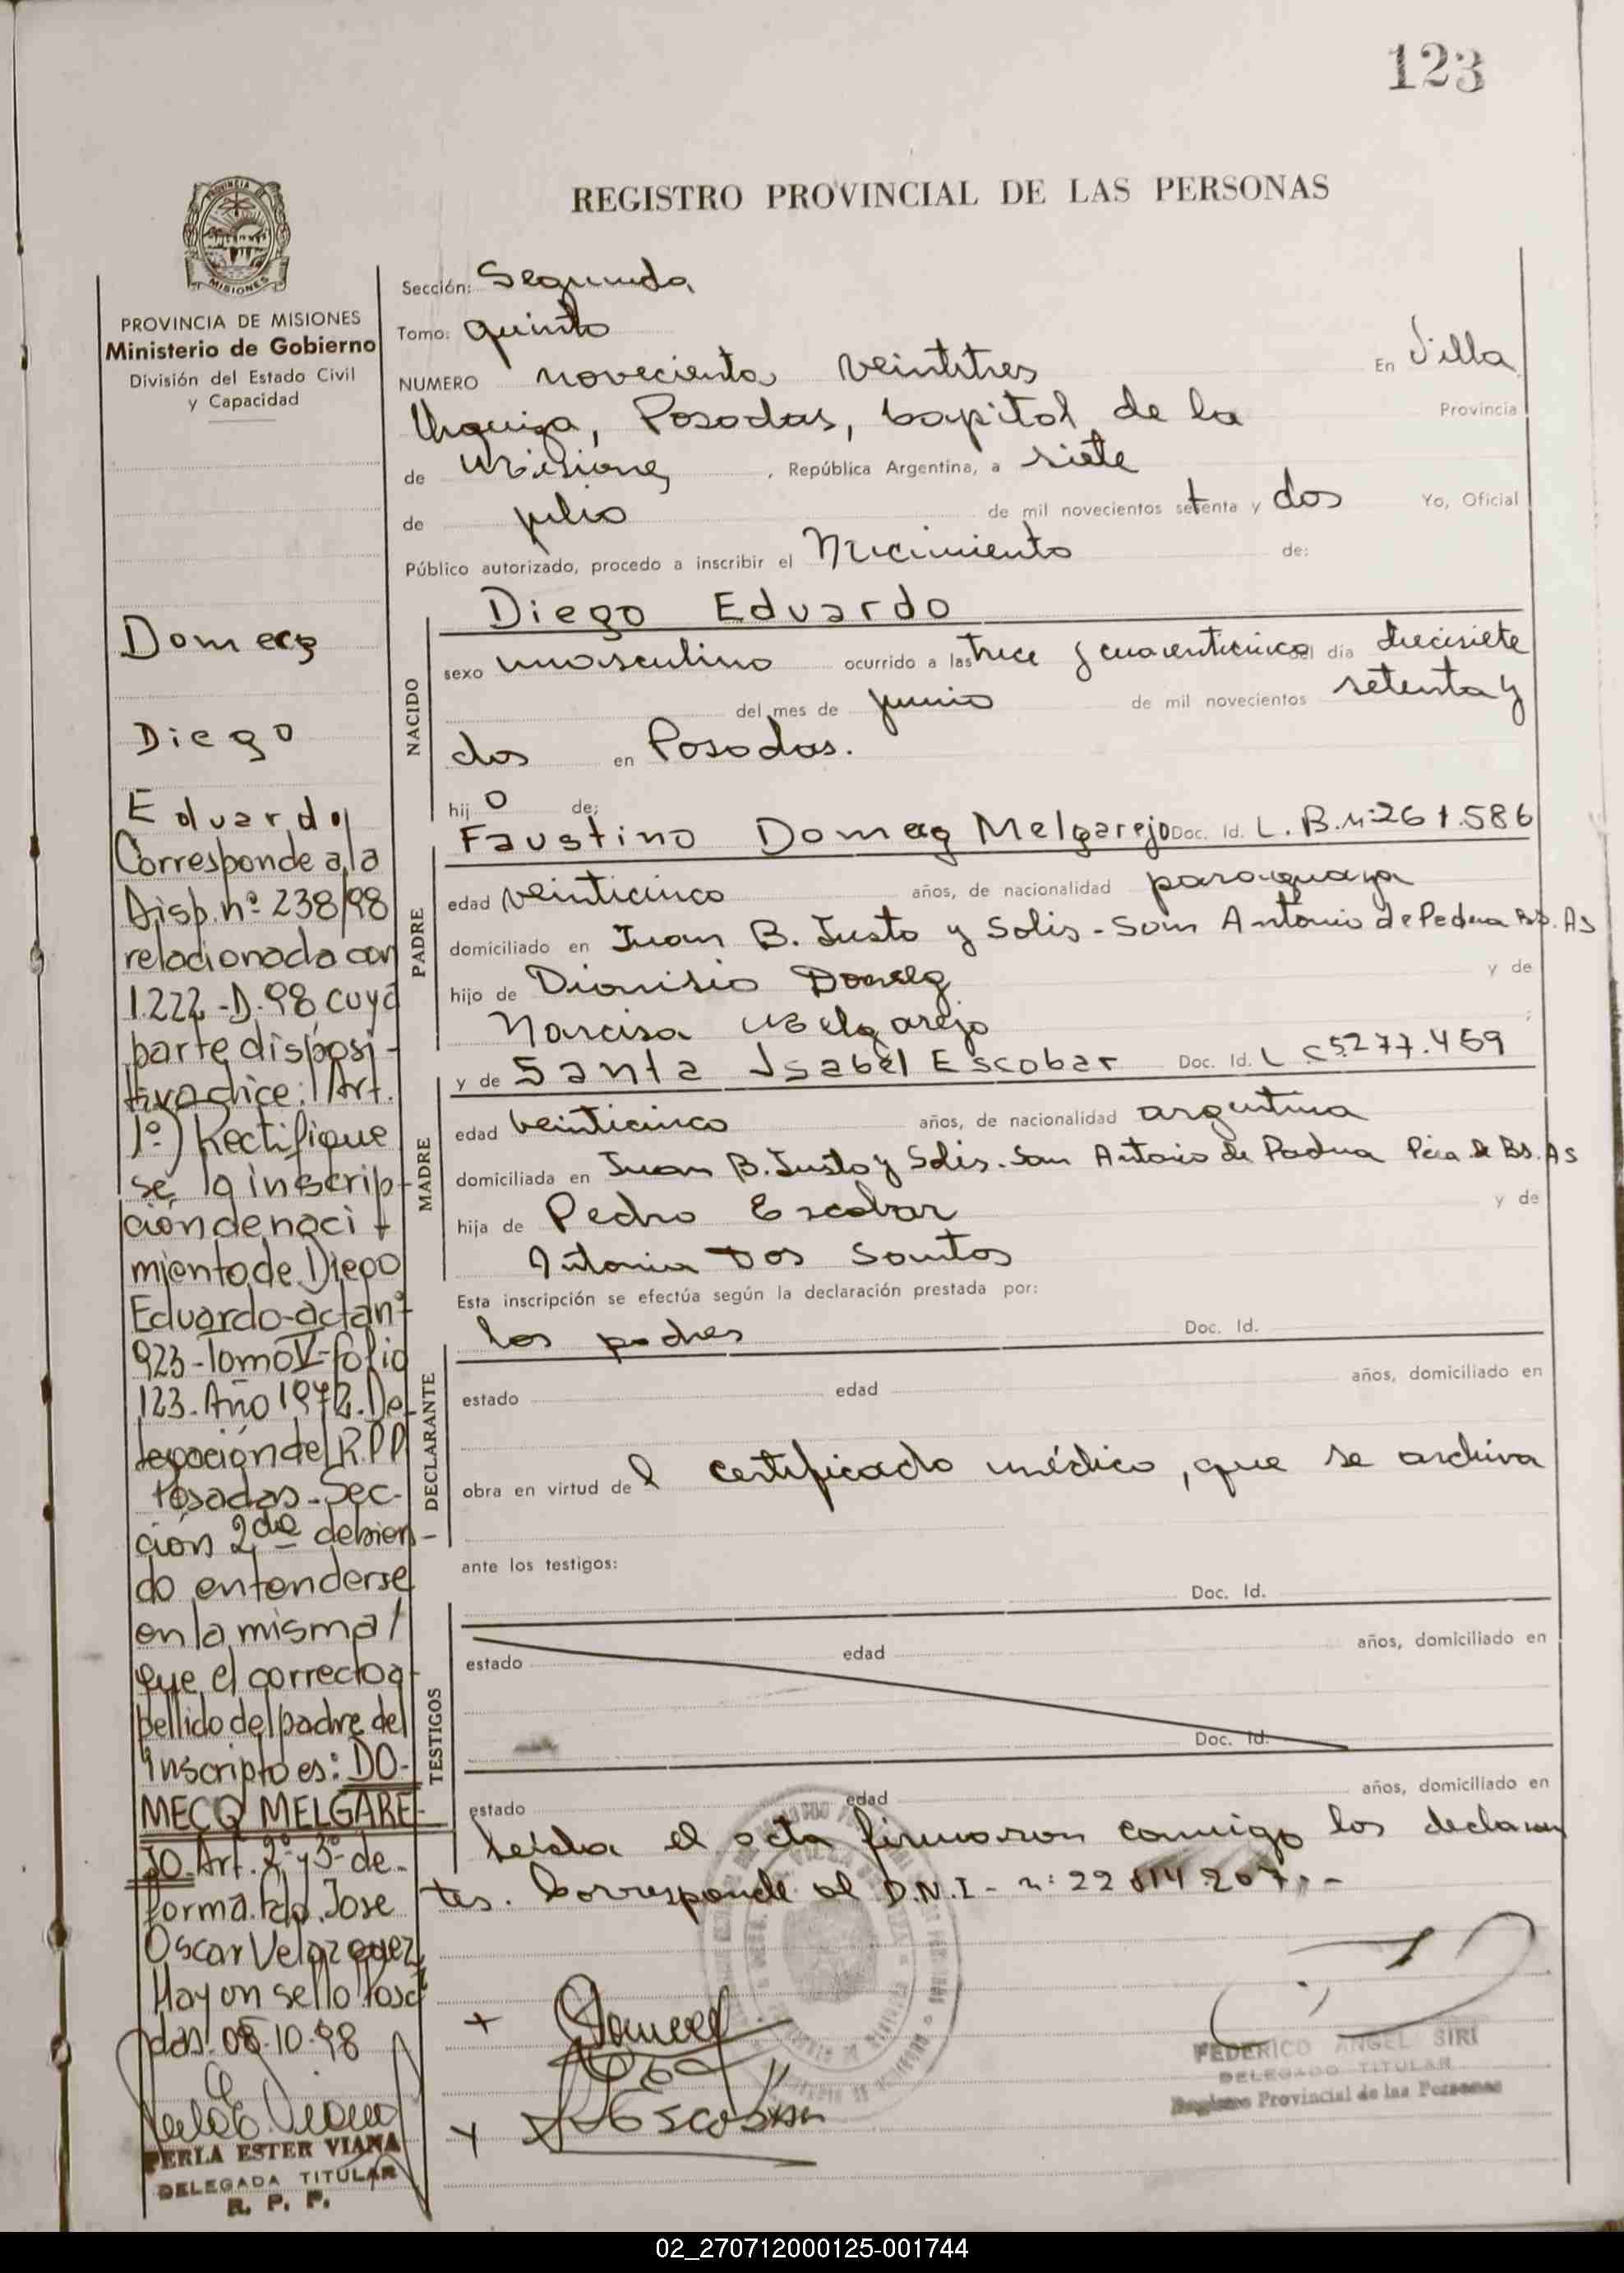 123
REGISTRO PROVINCIAL DE LAS PERSONAS
MISIONES
PROVINCIA DE MISIONES
Ministerio de Gobierno
División del Estado Civil
y Capacidad
Sección: Segunda
Tomo: quinto
NUMERO novecientos veintitres En Villa
Urquiza, Posadas, Capital de la Provincia
de Misiones, República Argentina, a siete
de julio de mil novecientos setenta y dos Yo, Oficial
Público autorizado, procedo a inscribir el Nacimiento de:
NACIDO
Diego Eduardo
sexo masculino ocurrido a las trece y cuarenticinco del día diecisiete
del mes de junio de mil novecientos setenta y
dos en Posadas.
hijo de;
PADRE
Faustino Domecq Melgarejo Doc. Id. L. B. nº 261.586
edad veinticinco años, de nacionalidad paraguaya
domiciliado en Juan B. Justo y Solis - San Antonio de Padua Bs. As
hijo de Dionisio Domecq y de
Narcisa Melgarejo
MADRE
y de Santa Isabel Escobar Doc. Id. L C 5277.459
edad veinticinco años, de nacionalidad argentina
domiciliada en Juan B. Justo y Solis. San Antonio de Padua Pcia de Bs. As
hija de Pedro Escobar y de
Antonia Dos Santos
Esta inscripción se efectúa según la declaración prestada por:
DECLARANTE
los padres Doc. Id.
estado edad años, domiciliado en
obra en virtud del certificado médico, que se archiva
ante los testigos:
TESTIGOS
Doc. Id.
estado edad años, domiciliado en
Doc. Id.
estado edad años, domiciliado en
Leida el acta firmaron conmigo los declaran
tes. Corresponde al D.N.I - n:
Domecq
Diego
Eduardo
Corresponde a la
Disp. nº 238/98
relacionada con
1.222-D-98 cuya
parte disposi-
tiva dice: Art.
1º) Rectifique
se la inscrip-
ción de naci-
miento de Diego
Eduardo-acta nº
923-Tomo V-folio
123-Año 1972. De-
legación del R.P.P
Posadas-Sec-
ción 2da debien-
do entenderse
en la misma/
que el correcto a-
pellido del padre del
inscripto es: DO-
MECQ MELGARE-
JO. Art. 2º y 3º de
forma. Fdo. Jose
Oscar Velazquez
Hay un sello Posa
das. 08-10-98
PERLA ESTER VIANA
DELEGADA TITULAR
R. P. P.
Escobar
FEDERICO ANGEL SIRI
DELEGADO TITULAR
Registro Provincial de las Personas
02_270712000125-001744